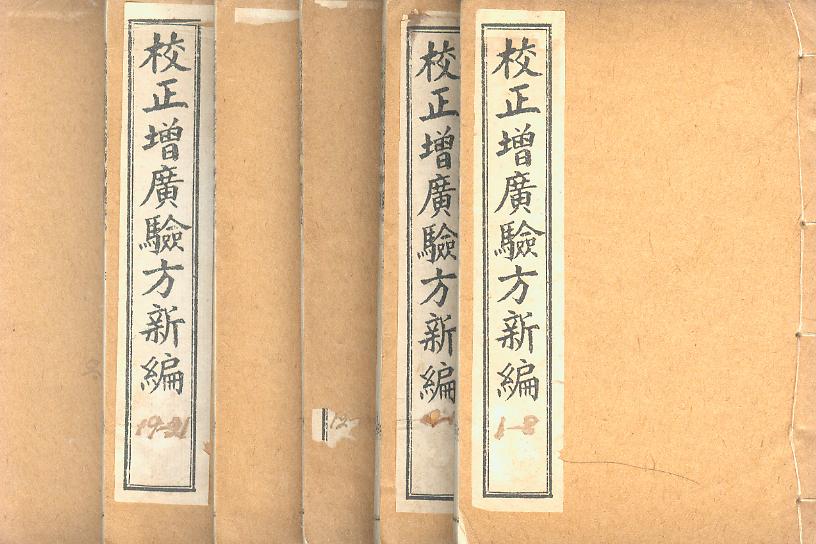 校正增廣驗方新編
1-8
校正增廣驗方新編
12-
校正增廣驗方新編